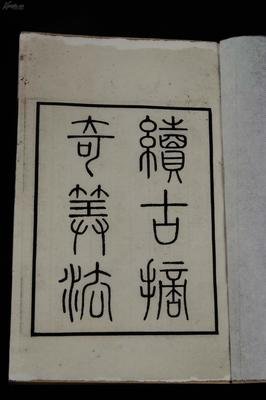 續古摘
奇筭法